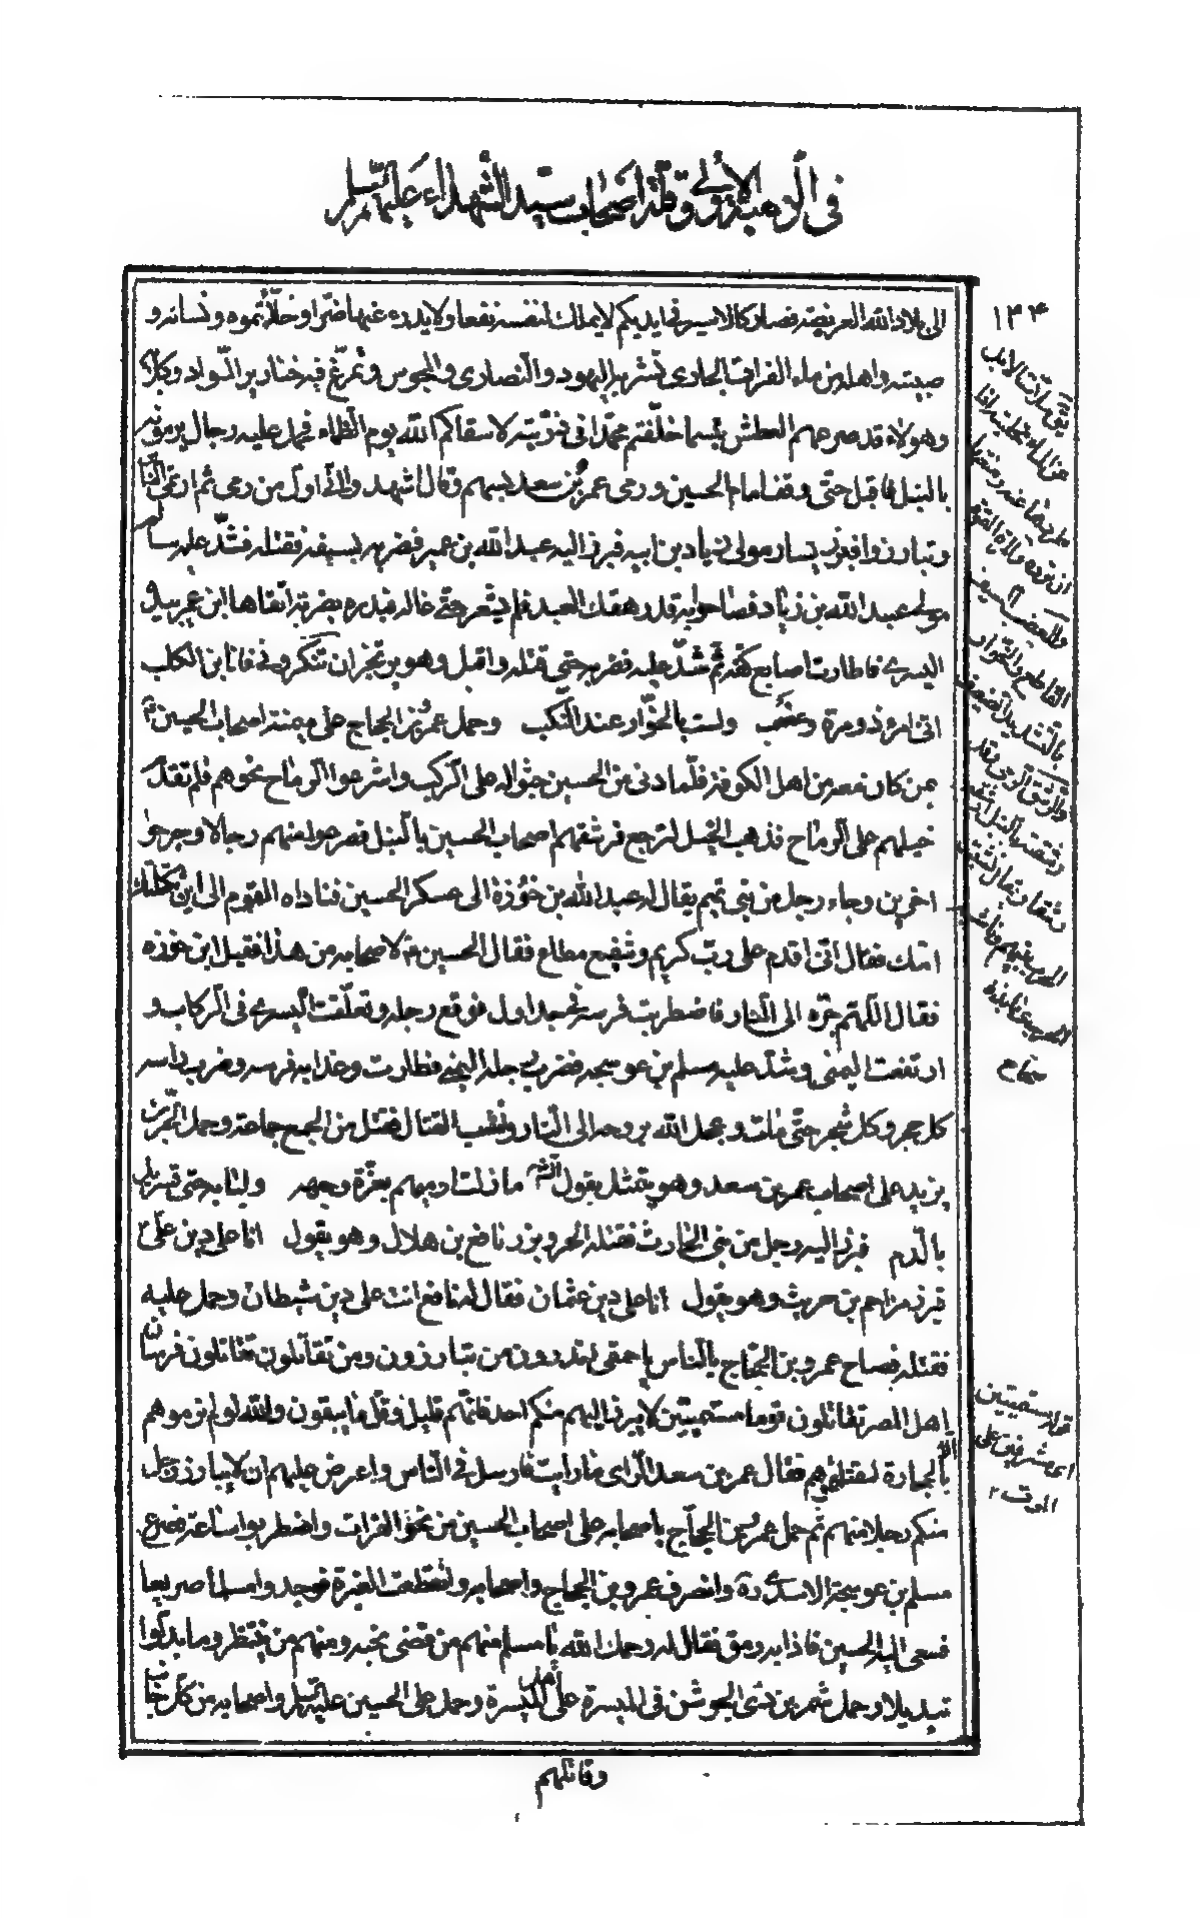 في الوهبة الأولى وقتلة اصحاب سيد الشهداء عليه السلام
الى بلاد الله العريضة فصار كالاسير في ايديكم لا يملك لنفسه نفعا ولا يدفع عنها ضرا وحلأتموه ونسائه و
صبيته واهله من ماء الفرات الجاري تشربه اليهود والنصارى والمجوس وتمرغ فيه خنازير السواد وكلابه
وهؤلاء قد صرعهم العطش بئسما خلفتم محمدا في ذريته لا سقاكم الله يوم الظماء فحمل عليه رجال يرمونه
بالنبل فاقبل حتى وقف امام الحسين ورمى عمر بن سعد بسهم وقال اشهدوا اني اول من رمى ثم ارتمى الناس
وتبارزوا فبرز يسار مولى زياد بن ابيه فبرز اليه عبد الله بن عمير فضربه بسيفه فقتله فشد عليه سالم
مولى عبيد الله بن زياد فصاحوا به قد رهقك العبد فلم يشعر حتى خالد فبدره بضربة اتقاها ابن عمير بيده
اليسرى فاطارت اصابع كفه ثم شد عليه فضربه حتى قتله واقبل وهو يرتجز ان تنكروني فانا ابن الكلب
اني امرؤ ذو مرة وعضب ولست بالخوار عند النكب وحمل عمرو بن الحجاج على ميمنة اصحاب الحسين ع
بمن كان معه من اهل الكوفة فلما دنى من الحسين جثوا له على الركب واشرعوا الرماح نحوهم فلم تقدم
خيلهم على الرماح فذهب الخيل لترجع فرشقهم اصحاب الحسين بالنبل فصرعوا منهم رجالا وجرحوا
اخرين وجاء رجل من بني تميم يقال له عبد الله بن خوزة الى عسكر الحسين فناداه القوم الى اين ثكلتك
امك فقال اني اقدم على رب كريم وشفيع مطاع فقال الحسين ع لاصحابه من هذا فقيل ابن خوزه
فقال اللهم جره الى النار فاضطربت فرسه في جداول فوقع رجله وتعلقت اليسرى في الركاب و
ارتفعت اليمنى وشد عليه مسلم بن عوسجه فضرب رجله اليمنى فطارت وغدا به فرسه وضرب براسه
كل حجر وكل شجر حتى مات وعجل الله بروحه الى النار ونشب القتال فقتل من الجمع جماعة وحمل الحر بن
يزيد على اصحاب عمر بن سعد وهو يتمثل يقول الشعر ما زلت ارميهم بغرة وجهه ولبانه حتى تسربل
بالدم فبرز اليه رجل من بني الحارث فقتله الحر وبرز نافع بن هلال وهو يقول انا على دين علي ع
فبرز مزاحم بن حريث وهو يقول انا على دين عثمان فقال له نافع انت على دين شيطان وحمل عليه
فقتله فصاح عمرو بن الحجاج بالناس يا حمقى اتدرون من تبارزون ومن تقاتلون تقاتلون فرسان
اهل المصر تقاتلون قوما مستميتين لا يبرز اليهم منكم احد فانهم قليل وقل ما يبقون والله لو لم ترموهم
بالحجارة لقتلتموهم فقال عمر بن سعد الراى ما رايت فارسل في الناس واعرض عليهم ان لا يبارز رجل
منكم رجلا منهم ثم حمل عمرو بن الحجاج باصحابه على اصحاب الحسين من نحو الفرات واضطربوا ساعة فصرع
مسلم بن عوسجة الاسدي ره وانصرف عمرو بن الحجاج واصحابه وانقطعت الغبرة فوجدوا مسلما صريعا
فسعى اليه الحسين فاذا به رمق فقال له رحمك الله يا مسلم منهم من قضى نحبه ومنهم من ينتظر وما بدلوا
تبديلا وحمل شمر بن ذي الجوشن في الميسرة على اهل الميسرة وحمل على الحسين عليه السلام واصحابه من كل جانب
وقاتلهم
١٤٤
ان ترده
القاطع والخوار
بالتشديد الضعيف
صحاح
قوله مستميتين
اي مشرفين على
الموت ٢